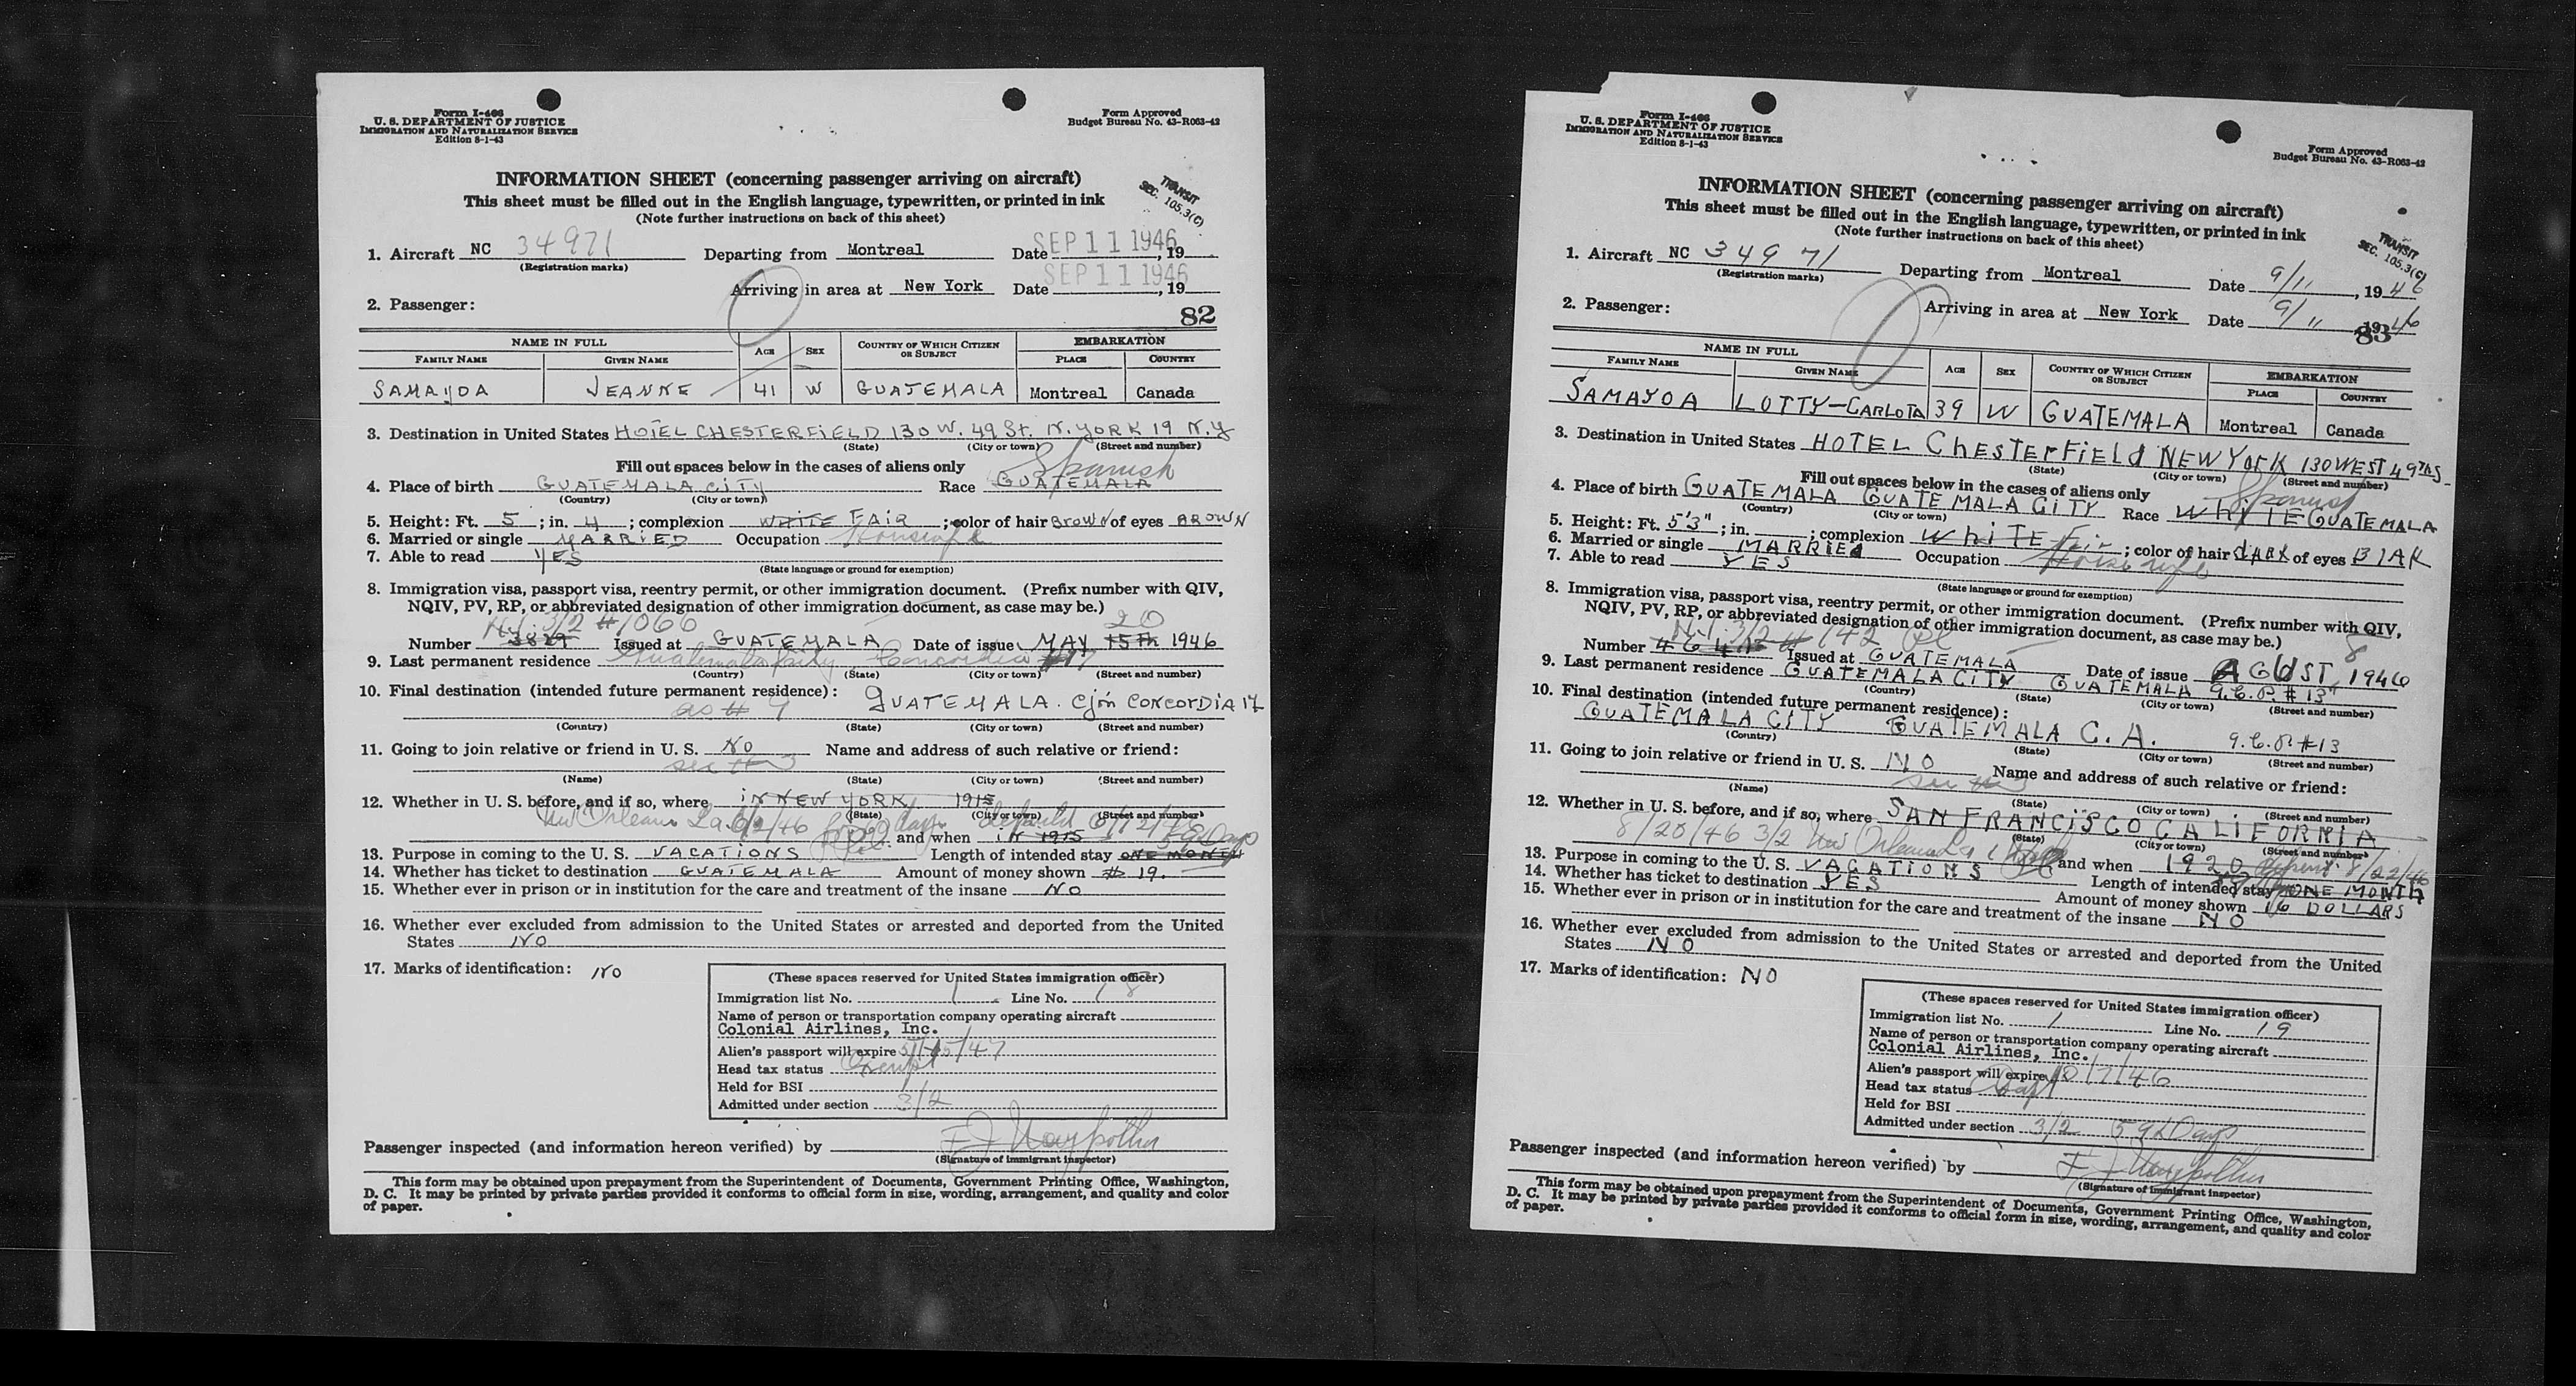 Form I-466
U. S. DEPARTMENT OF JUSTICE
IMMIGRATION AND NATURALIZATION SERVICE
Edition 8-1-43
Form Approved
Budget Bureau No. 43-R063-42
INFORMATION SHEET (concerning passenger arriving on aircraft)
This sheet must be filled out in the English language, typewritten, or printed in ink
(Note further instructions on back of this sheet)
TRANSIT
SEC. 105.3(C)
1. Aircraft NC 34971 Departing from Montreal Date SEP 11 1946, 19
(Registration marks)
Arriving in area at New York Date SEP 11 1946, 19
2. Passenger:
82
NAME IN FULL AGE SEX COUNTRY OF WHICH CITIZEN OR SUBJECT EMBARKATION
FAMILY NAME GIVEN NAME PLACE COUNTRY
SAMAYOA JEANNE 41 W GUATEMALA Montreal Canada
3. Destination in United States HOTEL CHESTERFIELD 130 W. 49 St. N. YORK 19 N.Y
(State) (City or town) (Street and number)
Fill out spaces below in the cases of aliens only
Spanish
4. Place of birth GUATEMALA CITY Race GUATEMALA
(Country) (City or town)
5. Height: Ft. 5; in. 4; complexion WHITE FAIR; color of hair BROWN of eyes BROWN
6. Married or single MARRIED Occupation Housewife
7. Able to read YES
(State language or ground for exemption)
8. Immigration visa, passport visa, reentry permit, or other immigration document. (Prefix number with QIV,
NQIV, PV, RP, or abbreviated designation of other immigration document, as case may be.)
3/2 #1066 20
Number 3829 Issued at GUATEMALA Date of issue MAY 15th 1946
9. Last permanent residence Guatemala City Concordia #17
(Country) (State) (City or town) (Street and number)
10. Final destination (intended future permanent residence): GUATEMALA. Cjón CONCORDIA 17
as # 9
(Country) (State) (City or town) (Street and number)
11. Going to join relative or friend in U. S. NO Name and address of such relative or friend:
see # 3
(Name) (State) (City or town) (Street and number)
12. Whether in U. S. before, and if so, where IN NEW YORK 1915
(State) (City or town) (Street and number)
New Orleans La. 6/2/46 and when in 1915
13. Purpose in coming to the U. S. VACATIONS Length of intended stay ONE MONTH
14. Whether has ticket to destination GUATEMALA Amount of money shown $ 19.
15. Whether ever in prison or in institution for the care and treatment of the insane NO
16. Whether ever excluded from admission to the United States or arrested and deported from the United
States NO
17. Marks of identification: NO
(These spaces reserved for United States immigration officer)
Immigration list No. 1 Line No. 18
Name of person or transportation company operating aircraft
Colonial Airlines, Inc.
Alien's passport will expire 5/15/47
Head tax status Exempt
Held for BSI
Admitted under section 3/2
Passenger inspected (and information hereon verified) by
(Signature of immigrant inspector)
This form may be obtained upon prepayment from the Superintendent of Documents, Government Printing Office, Washington,
D. C. It may be printed by private parties provided it conforms to official form in size, wording, arrangement, and quality and color
of paper.
Form I-466
U. S. DEPARTMENT OF JUSTICE
IMMIGRATION AND NATURALIZATION SERVICE
Edition 8-1-43
Form Approved
Budget Bureau No. 43-R063-42
INFORMATION SHEET (concerning passenger arriving on aircraft)
This sheet must be filled out in the English language, typewritten, or printed in ink
(Note further instructions on back of this sheet)
TRANSIT
SEC. 105.3(C)
1. Aircraft NC 34971 Departing from Montreal Date 9/11, 1946
(Registration marks)
Arriving in area at New York Date 9/11, 1946
2. Passenger:
83
NAME IN FULL AGE SEX COUNTRY OF WHICH CITIZEN OR SUBJECT EMBARKATION
FAMILY NAME GIVEN NAME PLACE COUNTRY
SAMAYOA LOTTY-CARLOTA 39 W GUATEMALA Montreal Canada
3. Destination in United States HOTEL ChESTErFiELd NEW YOrK 130 WEST 49ThS
(State) (City or town) (Street and number)
Fill out spaces below in the cases of aliens only
Spanish
4. Place of birth GUATEMALA GUATEMALA CITY Race WhITE GUATEMALA
(Country) (City or town)
5. Height: Ft. 5'3"; in. ; complexion WhiTE Fair; color of hair dARK of eyes BlAK
6. Married or single MARRIEd Occupation Housewife
7. Able to read YES
(State language or ground for exemption)
8. Immigration visa, passport visa, reentry permit, or other immigration document. (Prefix number with QIV,
NQIV, PV, RP, or abbreviated designation of other immigration document, as case may be.)
3/2 # 142 8
Number Issued at GUATEMALA Date of issue AGUST, 1946
9. Last permanent residence GUATEMALA CITY GUATEMALA 9.C.P. # 13
(Country) (State) (City or town) (Street and number)
10. Final destination (intended future permanent residence):
GUATEMALA CITY GUATEMALA C. A. 9.C.P. #13
(Country) (State) (City or town) (Street and number)
11. Going to join relative or friend in U. S. NO Name and address of such relative or friend:
see # 3
(Name) (State) (City or town) (Street and number)
12. Whether in U. S. before, and if so, where SAN FRANCISCO CALIFORNIA
(State) (City or town) (Street and number)
8/20/46 3/2 New Orleans La and when 1920 8/22/46
13. Purpose in coming to the U. S. VACATIONS Length of intended stay ONE MONTH
14. Whether has ticket to destination YES Amount of money shown 16 DOLLARS
15. Whether ever in prison or in institution for the care and treatment of the insane NO
16. Whether ever excluded from admission to the United States or arrested and deported from the United
States NO
17. Marks of identification: NO
(These spaces reserved for United States immigration officer)
Immigration list No. 1 Line No. 19
Name of person or transportation company operating aircraft
Colonial Airlines, Inc.
Alien's passport will expire 10/7/46
Head tax status
Held for BSI
Admitted under section 3/2 59 Days
Passenger inspected (and information hereon verified) by
(Signature of immigrant inspector)
This form may be obtained upon prepayment from the Superintendent of Documents, Government Printing Office, Washington,
D. C. It may be printed by private parties provided it conforms to official form in size, wording, arrangement, and quality and color
of paper.